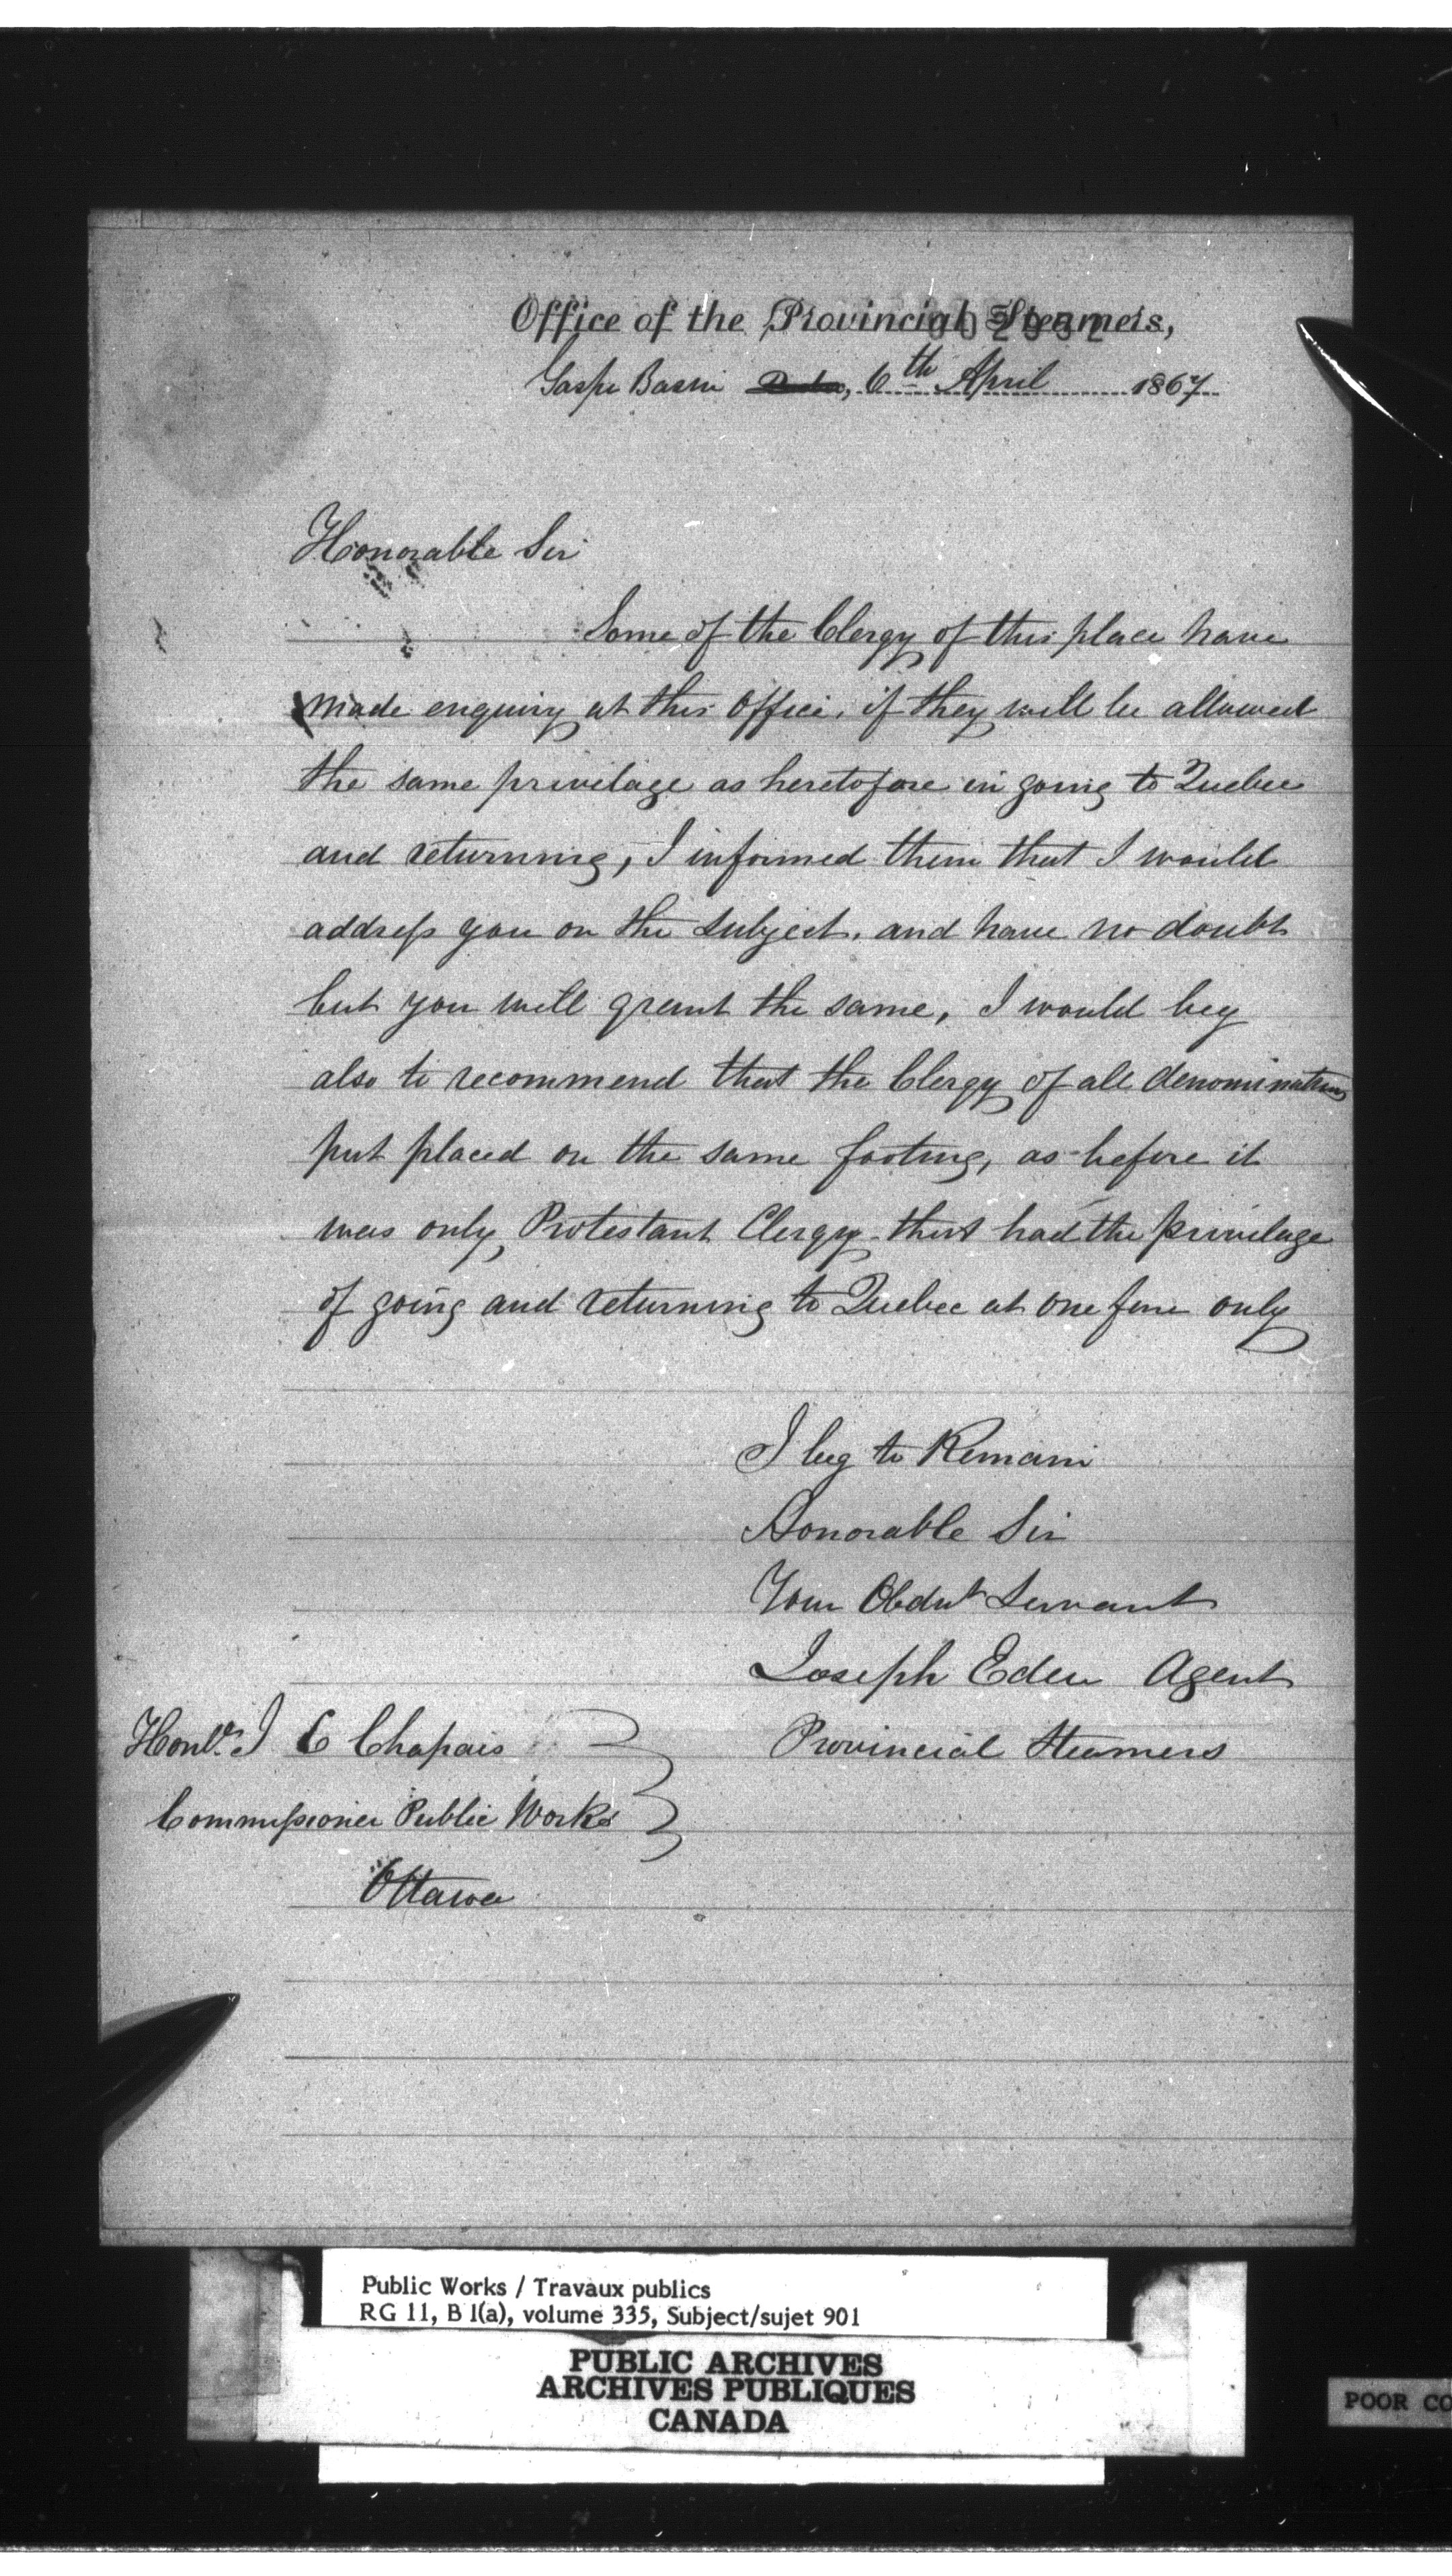 Office of the Provincial Steamers,
Gaspe Basin 6th April 1867
Honorable Sir
Some of the Clergy of this place have
made enquiry at this Office, if they will be allowed
the same privilage as heretofore in going to Quebec
and returning, I informed them that I would
address you on the subject, and have no doubt
but you will grant the same, I would beg
also to recommend that the Clergy of all denominations
put placed on the same footing, as before it
was only Protestant Clergy that had the privilage
of going and returning to Quebec at one fare only
I beg to Remain
Honorable Sir
Your Obdnt Servant
Joseph Eden Agent
Provincial Steamers
Honble. J C Chapais
Commissioner Public Works
Ottawa
Public Works / Travaux publics
RG 11, B 1(a), volume 335, Subject/sujet 901
PUBLIC ARCHIVES
ARCHIVES PUBLIQUES
CANADA
POOR CO